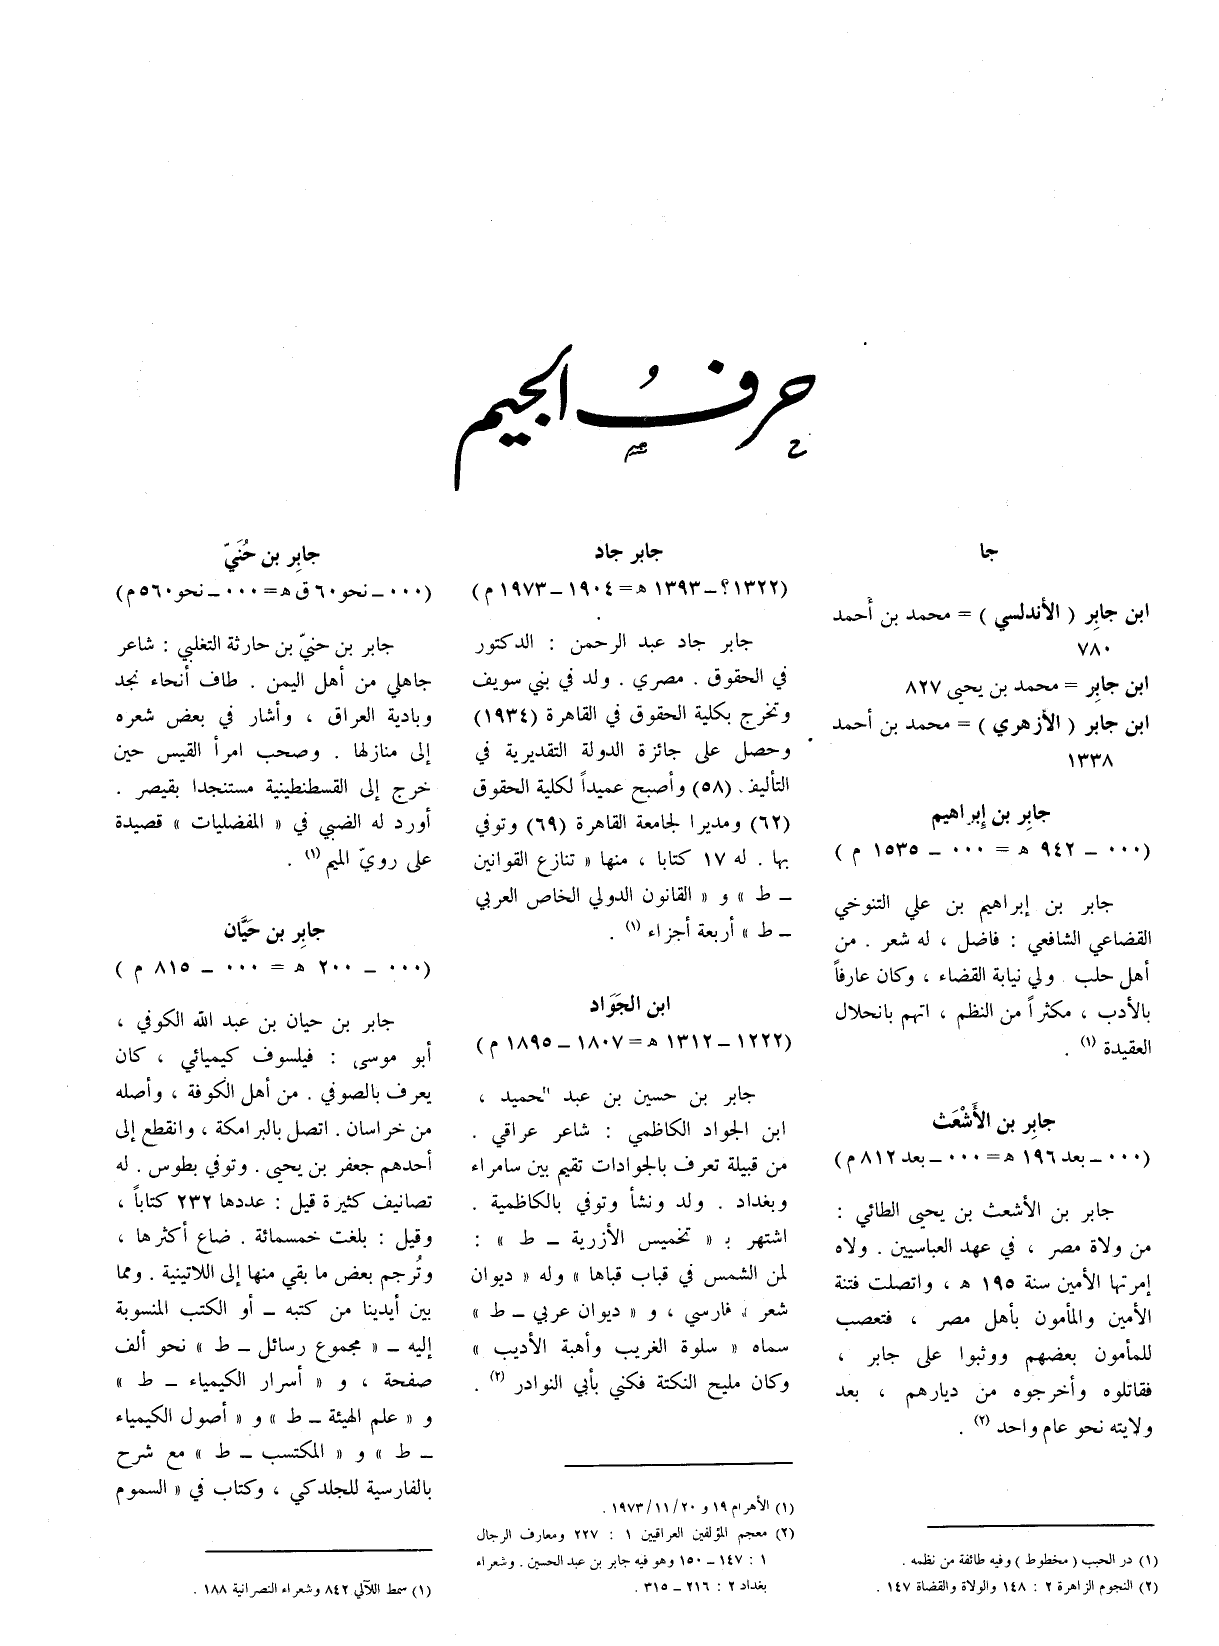 حرف الجيم
جا
ابن جابِر ( الأندلسي ) = محمد بن أحمد
٧٨٠
ابن جابِر = محمد بن يحيى ٨٢٧
ابن جابر ( الأزهري ) = محمد بن أحمد
١٣٣٨
جابِر بن إِبراهيم
(٠٠٠ ــ ٩٤٢ هـ = ٠٠٠ ــ ١٥٣٥ م )
جابر بن إبراهيم بن علي التنوخي
القضاعي الشافعي : فاضل ، له شعر . من
أهل حلب . ولي نيابة القضاء ، وكان عارفاً
بالأدب ، مكثراً من النظم ، اتهم بانحلال
العقيدة (١) .
جابِر بن الأَشْعَث
(٠٠٠ ــ بعد ١٩٦ هـ = ٠٠٠ ــ بعد ٨١٢ م)
جابر بن الأشعث بن يحيى الطائي :
من ولاة مصر ، في عهد العباسيين . ولاه
إمرتها الأمين سنة ١٩٥ هـ ، واتصلت فتنة
الأمين والمأمون بأهل مصر ، فتعصب
للمأمون بعضهم ووثبوا على جابر ،
فقاتلوه وأخرجوه من ديارهم ، بعد
ولايته نحو عام واحد (٢) .
(١) در الحبب ( مخطوط ) وفيه طائفة من نظمه .
(٢) النجوم الزاهرة ٢ : ١٤٨ والولاة والقضاة ١٤٧ .
جابر جاد
(١٣٢٢؟ ــ ١٣٩٣ هـ = ١٩٠٤ ــ ١٩٧٣ م )
جابر جاد عبد الرحمن : الدكتور
في الحقوق . مصري . ولد في بني سويف
وتخرج بكلية الحقوق في القاهرة (١٩٣٤)
وحصل على جائزة الدولة التقديرية في
التأليف . (٥٨) وأصبح عميداً لكلية الحقوق
(٦٢) ومديرا لجامعة القاهرة (٦٩) وتوفي
بها . له ١٧ كتابا ، منها « تنازع القوانين
ــ ط » و « القانون الدولي الخاص العربي
ــ ط » أربعة أجزاء (١) .
ابن الجَوَاد
(١٢٢٢ ــ ١٣١٢ هـ = ١٨٠٧ ــ ١٨٩٥ م )
جابر بن حسين بن عبد الحميد ،
ابن الجواد الكاظمي : شاعر عراقي .
من قبيلة تعرف بالجوادات تقيم بين سامراء
وبغداد . ولد ونشأ وتوفي بالكاظمية .
اشتهر بـ « تخميس الأزرية ــ ط » :
لمن الشمس في قباب قباها » وله « ديوان
شعر » فارسي ، و « ديوان عربي ــ ط »
سماه « سلوة الغريب وأهبة الأديب »
وكان مليح النكتة فكني بأبي النوادر (٢) .
(١) الأهرام ١٩ و ٢٠/١١/١٩٧٣ .
(٢) معجم المؤلفين العراقيين ١ : ٢٢٧ ومعارف الرجال
١ : ١٤٧ ــ ١٥٠ وهو فيه جابر بن عبد الحسين . وشعراء
بغداد ٢ : ٢١٦ ــ ٣١٥ .
جابِر بن حُنَيّ
(٠٠٠ ــ نحو ٦٠ ق هـ = ٠٠٠ ــ نحو ٥٦٠ م)
جابر بن حنيّ بن حارثة التغلبي : شاعر
جاهلي من أهل اليمن . طاف أنحاء نجد
وبادية العراق ، وأشار في بعض شعره
إلى منازلها . وصحب امرأ القيس حين
خرج إلى القسطنطينية مستنجدا بقيصر .
أورد له الضبي في « المفضليات » قصيدة
على رويّ الميم (١) .
جابِر بن حَيَّان
(٠٠٠ ــ ٢٠٠ هـ = ٠٠٠ ــ ٨١٥ م )
جابر بن حيان بن عبد الله الكوفي ،
أبو موسى : فيلسوف كيميائي ، كان
يعرف بالصوفي . من أهل الكوفة ، وأصله
من خراسان . اتصل بالبرامكة ، وانقطع إلى
أحدهم جعفر بن يحيى . وتوفي بطوس . له
تصانيف كثيرة قيل : عددها ٢٣٢ كتاباً ،
وقيل : بلغت خمسمائة . ضاع أكثرها ،
وتُرجم بعض ما بقي منها إلى اللاتينية . ومما
بين أيدينا من كتبه ــ أو الكتب المنسوبة
إليه ــ « مجموع رسائل ــ ط » نحو ألف
صفحة ، و « أسرار الكيمياء ــ ط »
و « علم الهيئة ــ ط » و « أصول الكيمياء
ــ ط » و « المكتسب ــ ط » مع شرح
بالفارسية للجلدكي ، وكتاب في « السموم
(١) سمط اللآلي ٨٤٢ وشعراء النصرانية ١٨٨ .